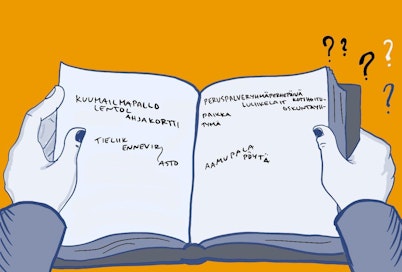 ? ? ? ?
KUUMAILMAPALLO
LENTOL
AHJAKORTTI
TIELIIK
ENNEVIR
ASTO
PERUSPALVERYHMÄPERHEPÄIVÄ
LULIIKELAIT KOTIHOITO-
PAIKKA OSKUNTAYH-
TYMÄ
AAMUPALA
PÖYTÄ
?